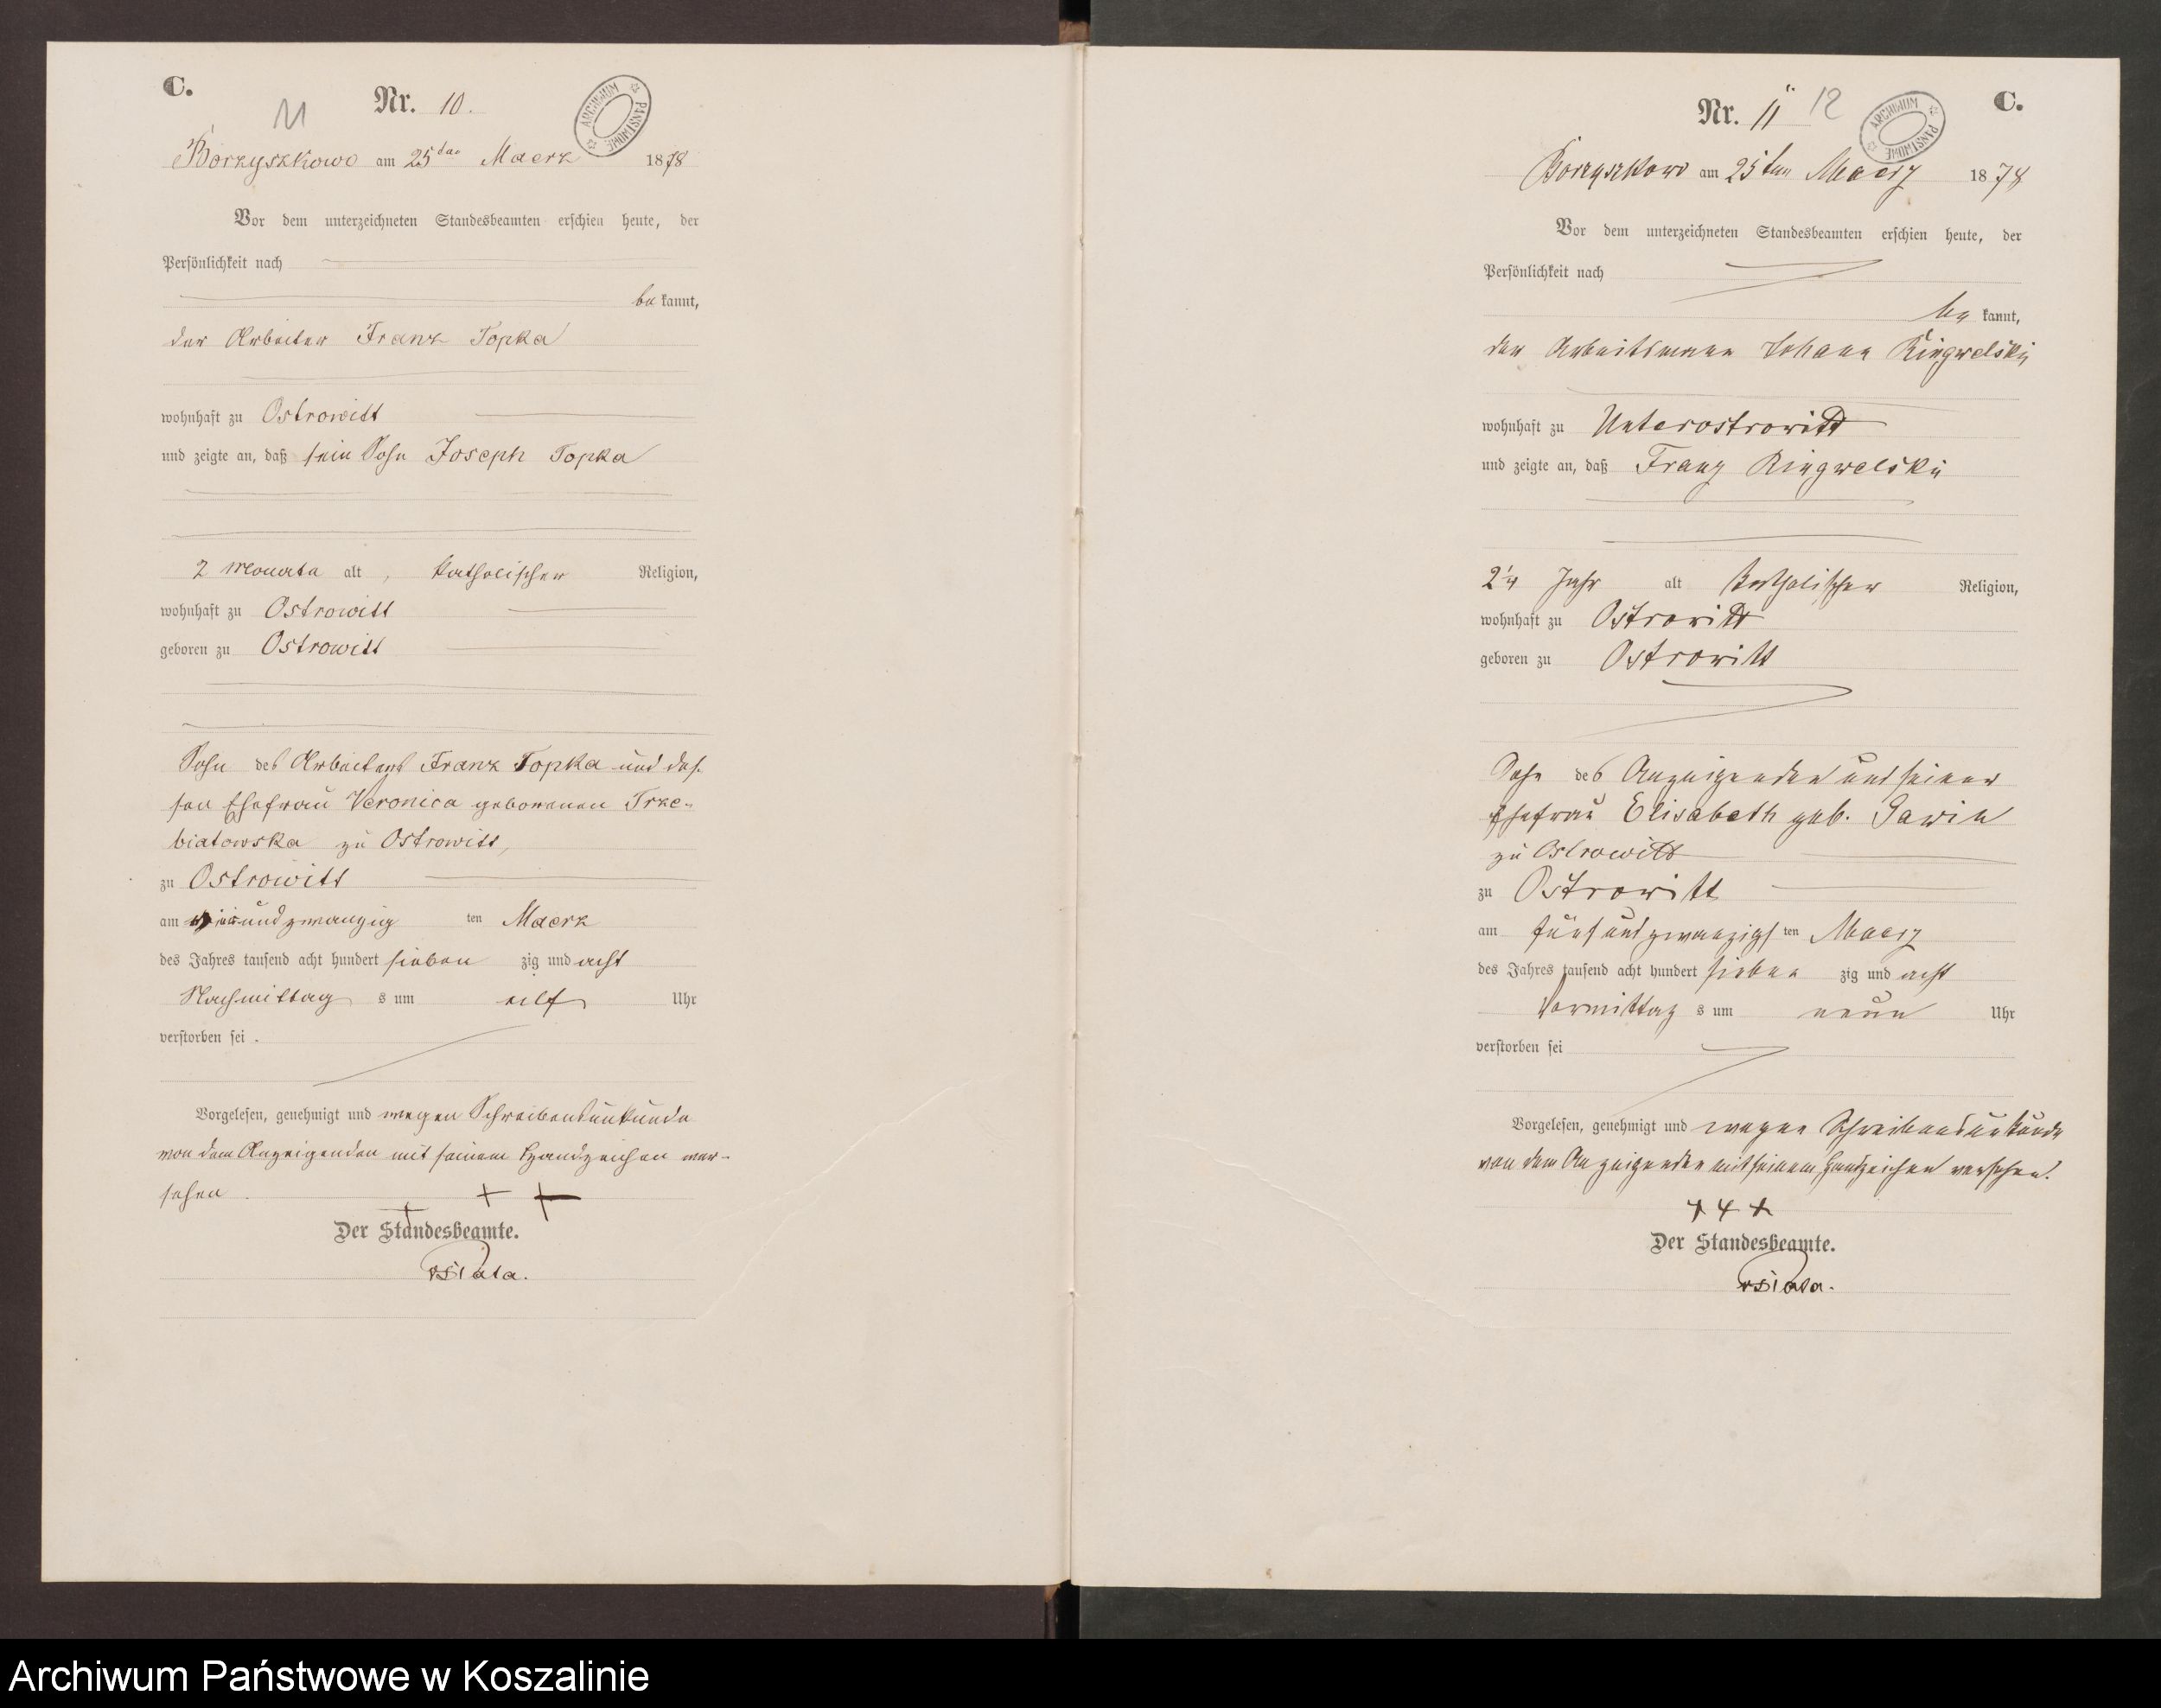 C.
11
Nr. 10.
ARCHIWUM PAŃSTWOWE
Borzyszkowo am 25ten Maerz 1878
Vor dem unterzeichneten Standesbeamten erschien heute, der
Persönlichkeit nach
bekannt,
der Arbeiter Franz Topka
wohnhaft zu Ostrowitt
und zeigte an, daß sein Sohn Joseph Topka
2 Monate alt, katholischer Religion,
wohnhaft zu Ostrowitt
geboren zu Ostrowitt
Sohn des Arbeiters Franz Topka und des-
sen Ehefrau Veronica geborenen Trze-
biatowska zu Ostrowitt,
zu Ostrowitt
am undzwanzig ten Maerz
des Jahres tausend acht hundert sieben zig und acht
Nachmittag s um eilf Uhr
verstorben sei.
Vorgelesen, genehmigt und wegen Schreibensunkunde
von dem Anzeigenden mit seinem Handzeichen ver-
sehen
+ + +
Der Standesbeamte.
C.
Nr. 11 12
ARCHIWUM PAŃSTWOWE
Borzyszkowo am 25ten Maerz 1878
Vor dem unterzeichneten Standesbeamten erschien heute, der
Persönlichkeit nach
bekannt,
der Arbeitsmann Johann Ringwelski
wohnhaft zu Unterostrowitt
und zeigte an, daß Franz Ringwelski
Jahr alt katholischer Religion,
wohnhaft zu Ostrowitt
geboren zu Ostrowitt
Sohn des Anzeigenden und seiner
Ehefrau Elisabeth geb. Gawin
zu Ostrowitt
zu Ostrowitt
am fünfundzwanzigs ten Maerz
des Jahres tausend acht hundert sieben zig und acht
Vormittag s um neun Uhr
verstorben sei
Vorgelesen, genehmigt und wegen Schreibensunkunde
von dem Anzeigenden mit seinem Handzeichen versehen.
+ + +
Der Standesbeamte.
Archiwum Państwowe w Koszalinie